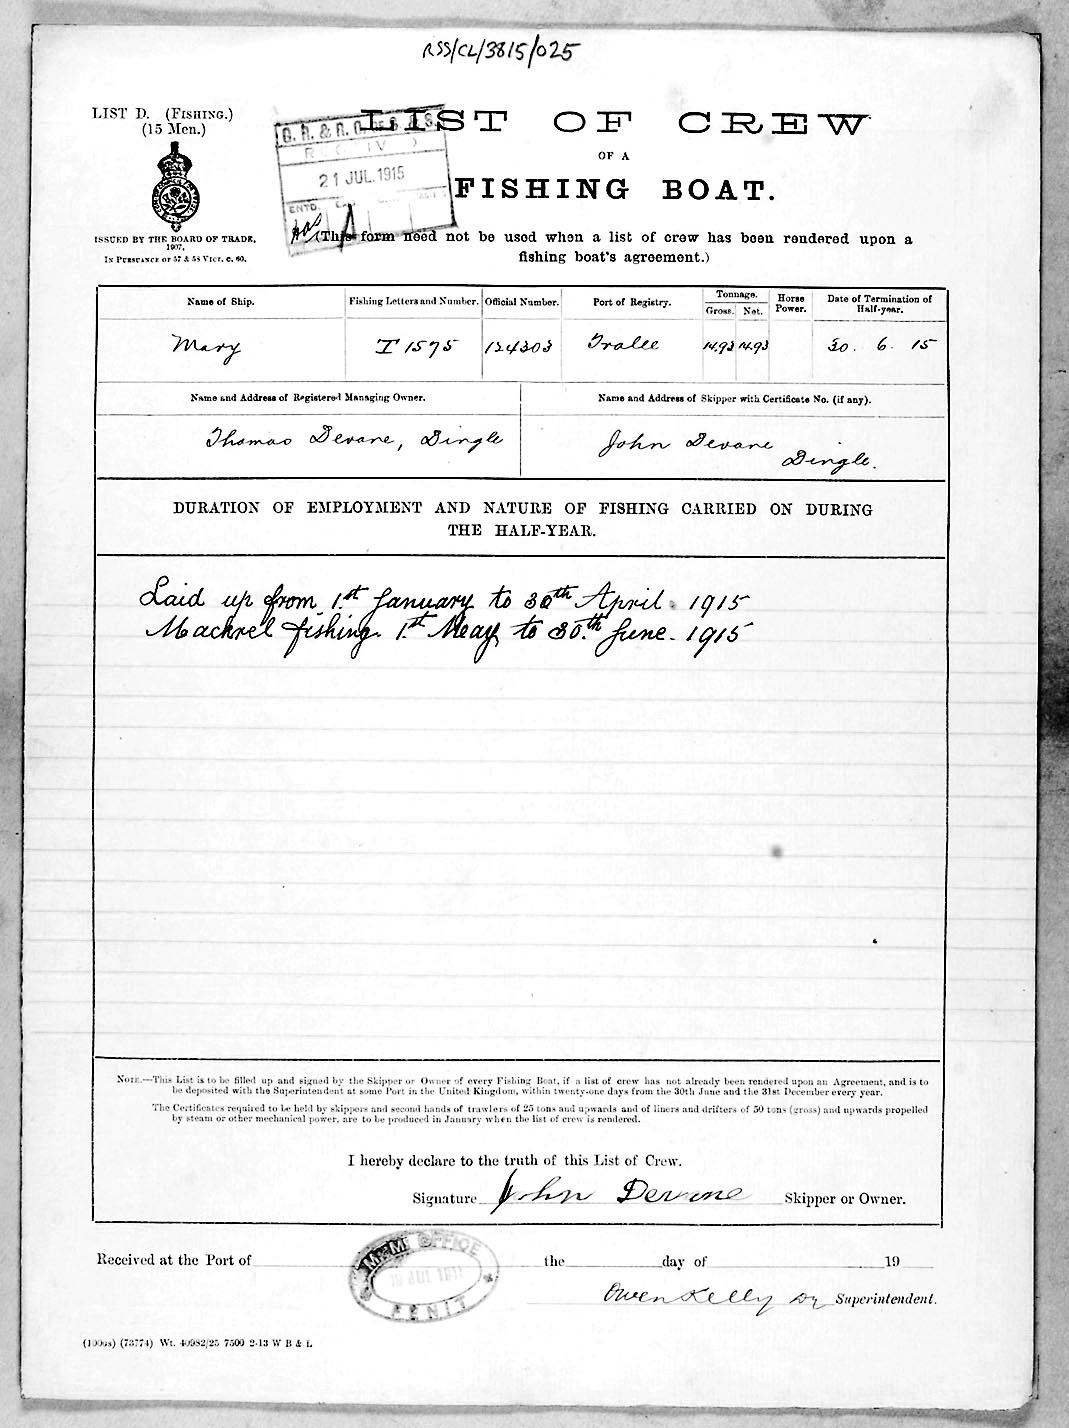 RSS/CL/3815/025
LIST D. (FISHING.)
(15 Men.)
ISSUED BY THE BOARD OF TRADE,
1907,
IN PURSUANCE OF 57 & 58 VICT. C. 60.
21 JUL.1915
ENTD.
LIST OF CREW
OF A
FISHING BOAT.
(This form need not be used when a list of crew has been rendered upon a
fishing boat's agreement.)
Name of Ship. Fishing Letters and Number. Official Number. Port of Registry. Tonnage. Gross. Net. Horse Power. Date of Termination of Half-year.
Mary T 1575 124303 Tralee 14.93 14.93 30. 6. 15
Name and Address of Registered Managing Owner. Name and Address of Skipper with Certificate No. (if any).
Thomas Devane, Dingle John Devane
Dingle.
DURATION OF EMPLOYMENT AND NATURE OF FISHING CARRIED ON DURING
THE HALF-YEAR.
Laid up from 1st January to 30th April. 1915
Mackrel fishing. 1st May to 30th June. 1915
NOTE.—This List is to be filled up and signed by the Skipper or Owner of every Fishing Boat, if a list of crew has not already been rendered upon an Agreement, and is to
be deposited with the Superintendent at some Port in the United Kingdom, within twenty-one days from the 30th June and the 31st December every year.
The Certificates required to be held by skippers and second hands of trawlers of 25 tons and upwards and of liners and drifters of 50 tons (gross) and upwards propelled
by steam or other mechanical power, are to be produced in January when the list of crew is rendered.
I hereby declare to the truth of this List of Crew.
Signature John Devane Skipper or Owner.
Received at the Port of the day of 19
M.M. OFFICE
FENIT
Owen Kelly Dy Superintendent.
(73774) Wt. 40982/25 7500 2-13 W B & L